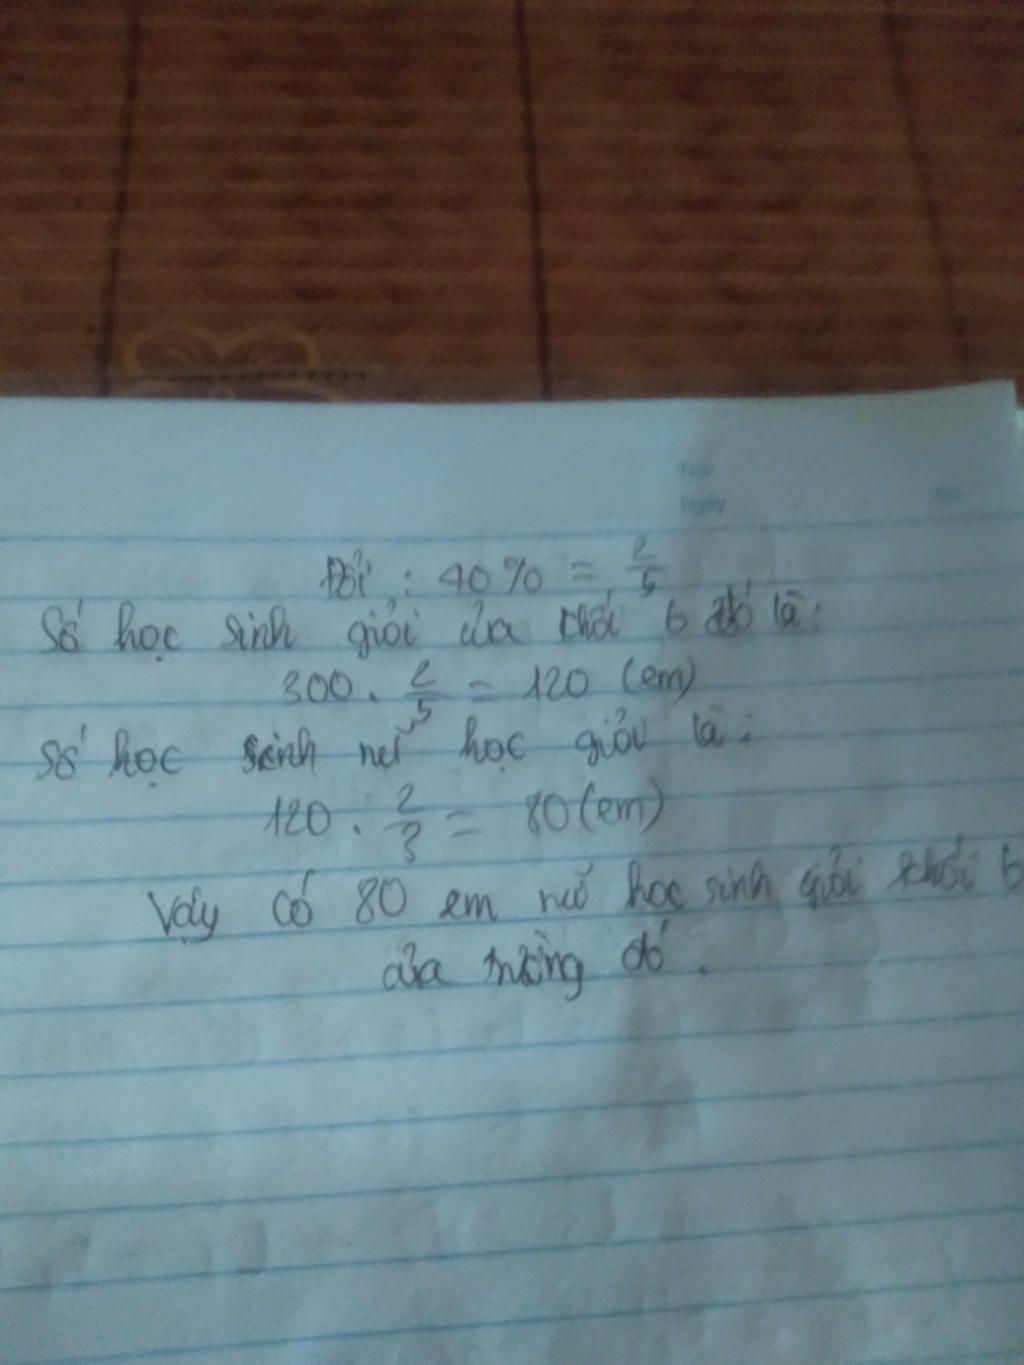 Thứ
Ngày
No.
Đổi : 40% = 2/5
Số học sinh giỏi của khối 6 đó là:
300 . 2/5 = 120 (em)
Số học sinh nữ học giỏi là:
120 . 2/3 = 80 (em)
Vậy có 80 em nữ học sinh giỏi khối 6
của trường đó.